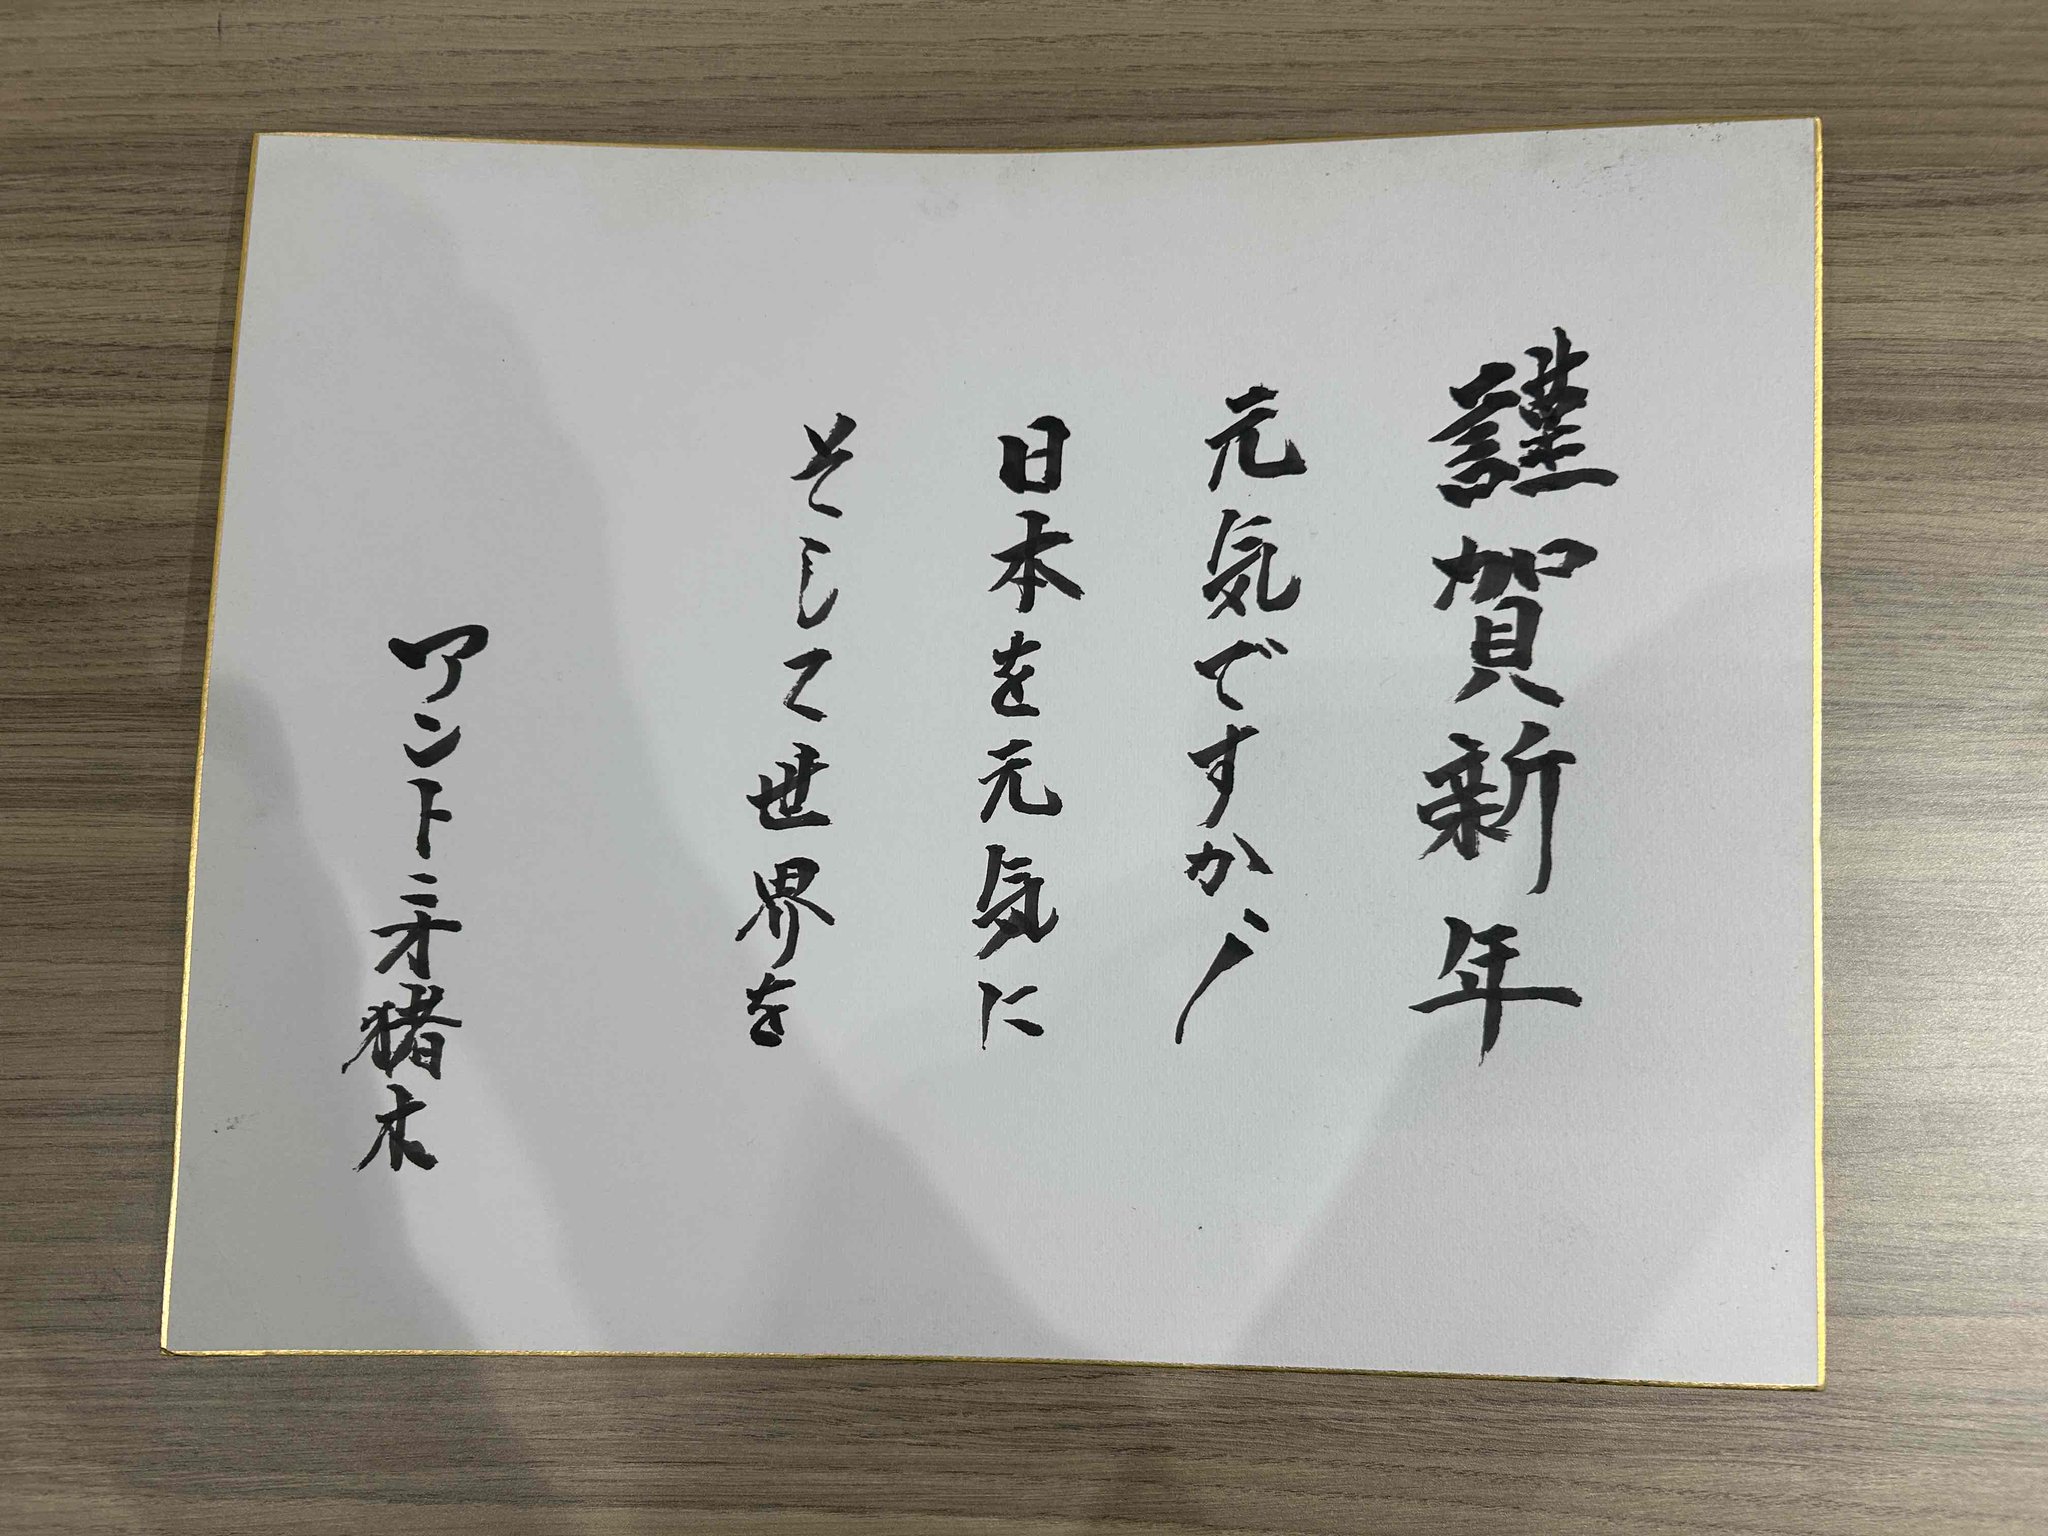 謹賀新年
元気ですかー!
日本を元気に
そして世界を
アントニオ猪木